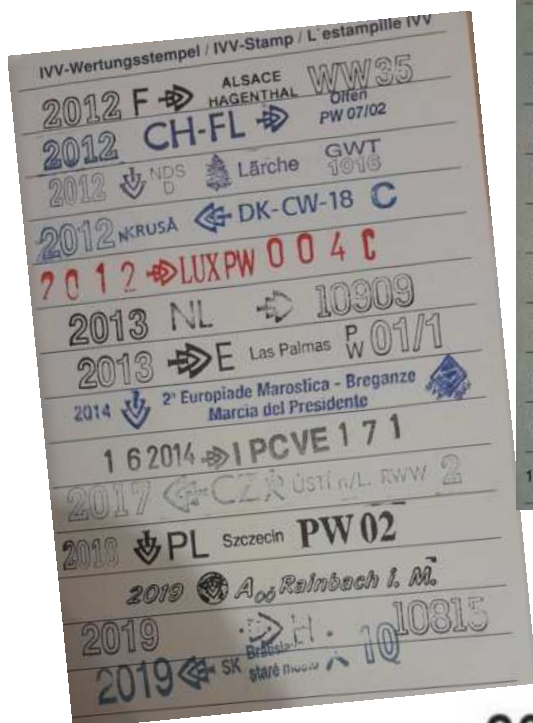 IVV-Wertungsstempel / IVV-Stamp / L´estampille IVV
2012 F ALSACE HAGENTHAL WW35
2012 CH-FL Olten PW 07/02
2012 NDS D Lärche GWT 1016
2012 KRUSÅ DK-CW-18 C
2012 LUXPW 004C
2013 NL 10909
2013 E Las Palmas PW 01/1
2014 2ª Europiade Marostica - Breganze
Marcia del Presidente
1 6 2014 I PCVE 171
2017 CZ ÚSTÍ n/L. RWW 2
2018 PL Szczecin PW 02
2019 A Rainbach i. M.
2019 H 10815
2019 SK staré 10